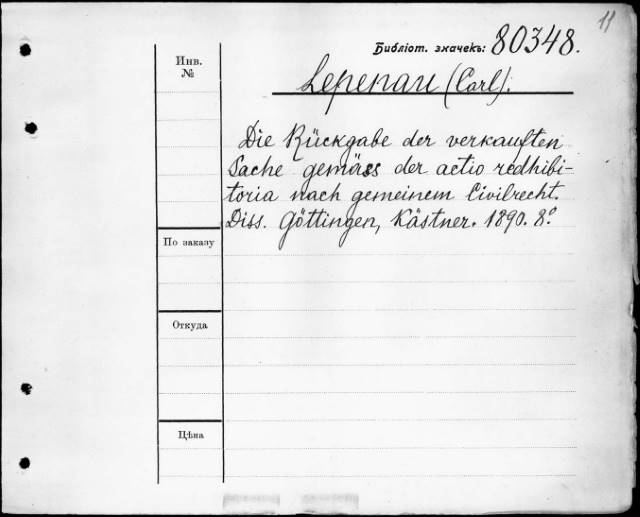 11
Библіот. значекъ: 80348.
Инв.
№
Lepenau (Carl).
Die Rückgabe der verkauften
Sache gemäss der actio redhibi-
toria nach gemeinem Civilrecht.
Diss. Göttingen, Kästner. 1890. 8º
По заказу
Откуда
Цѣна